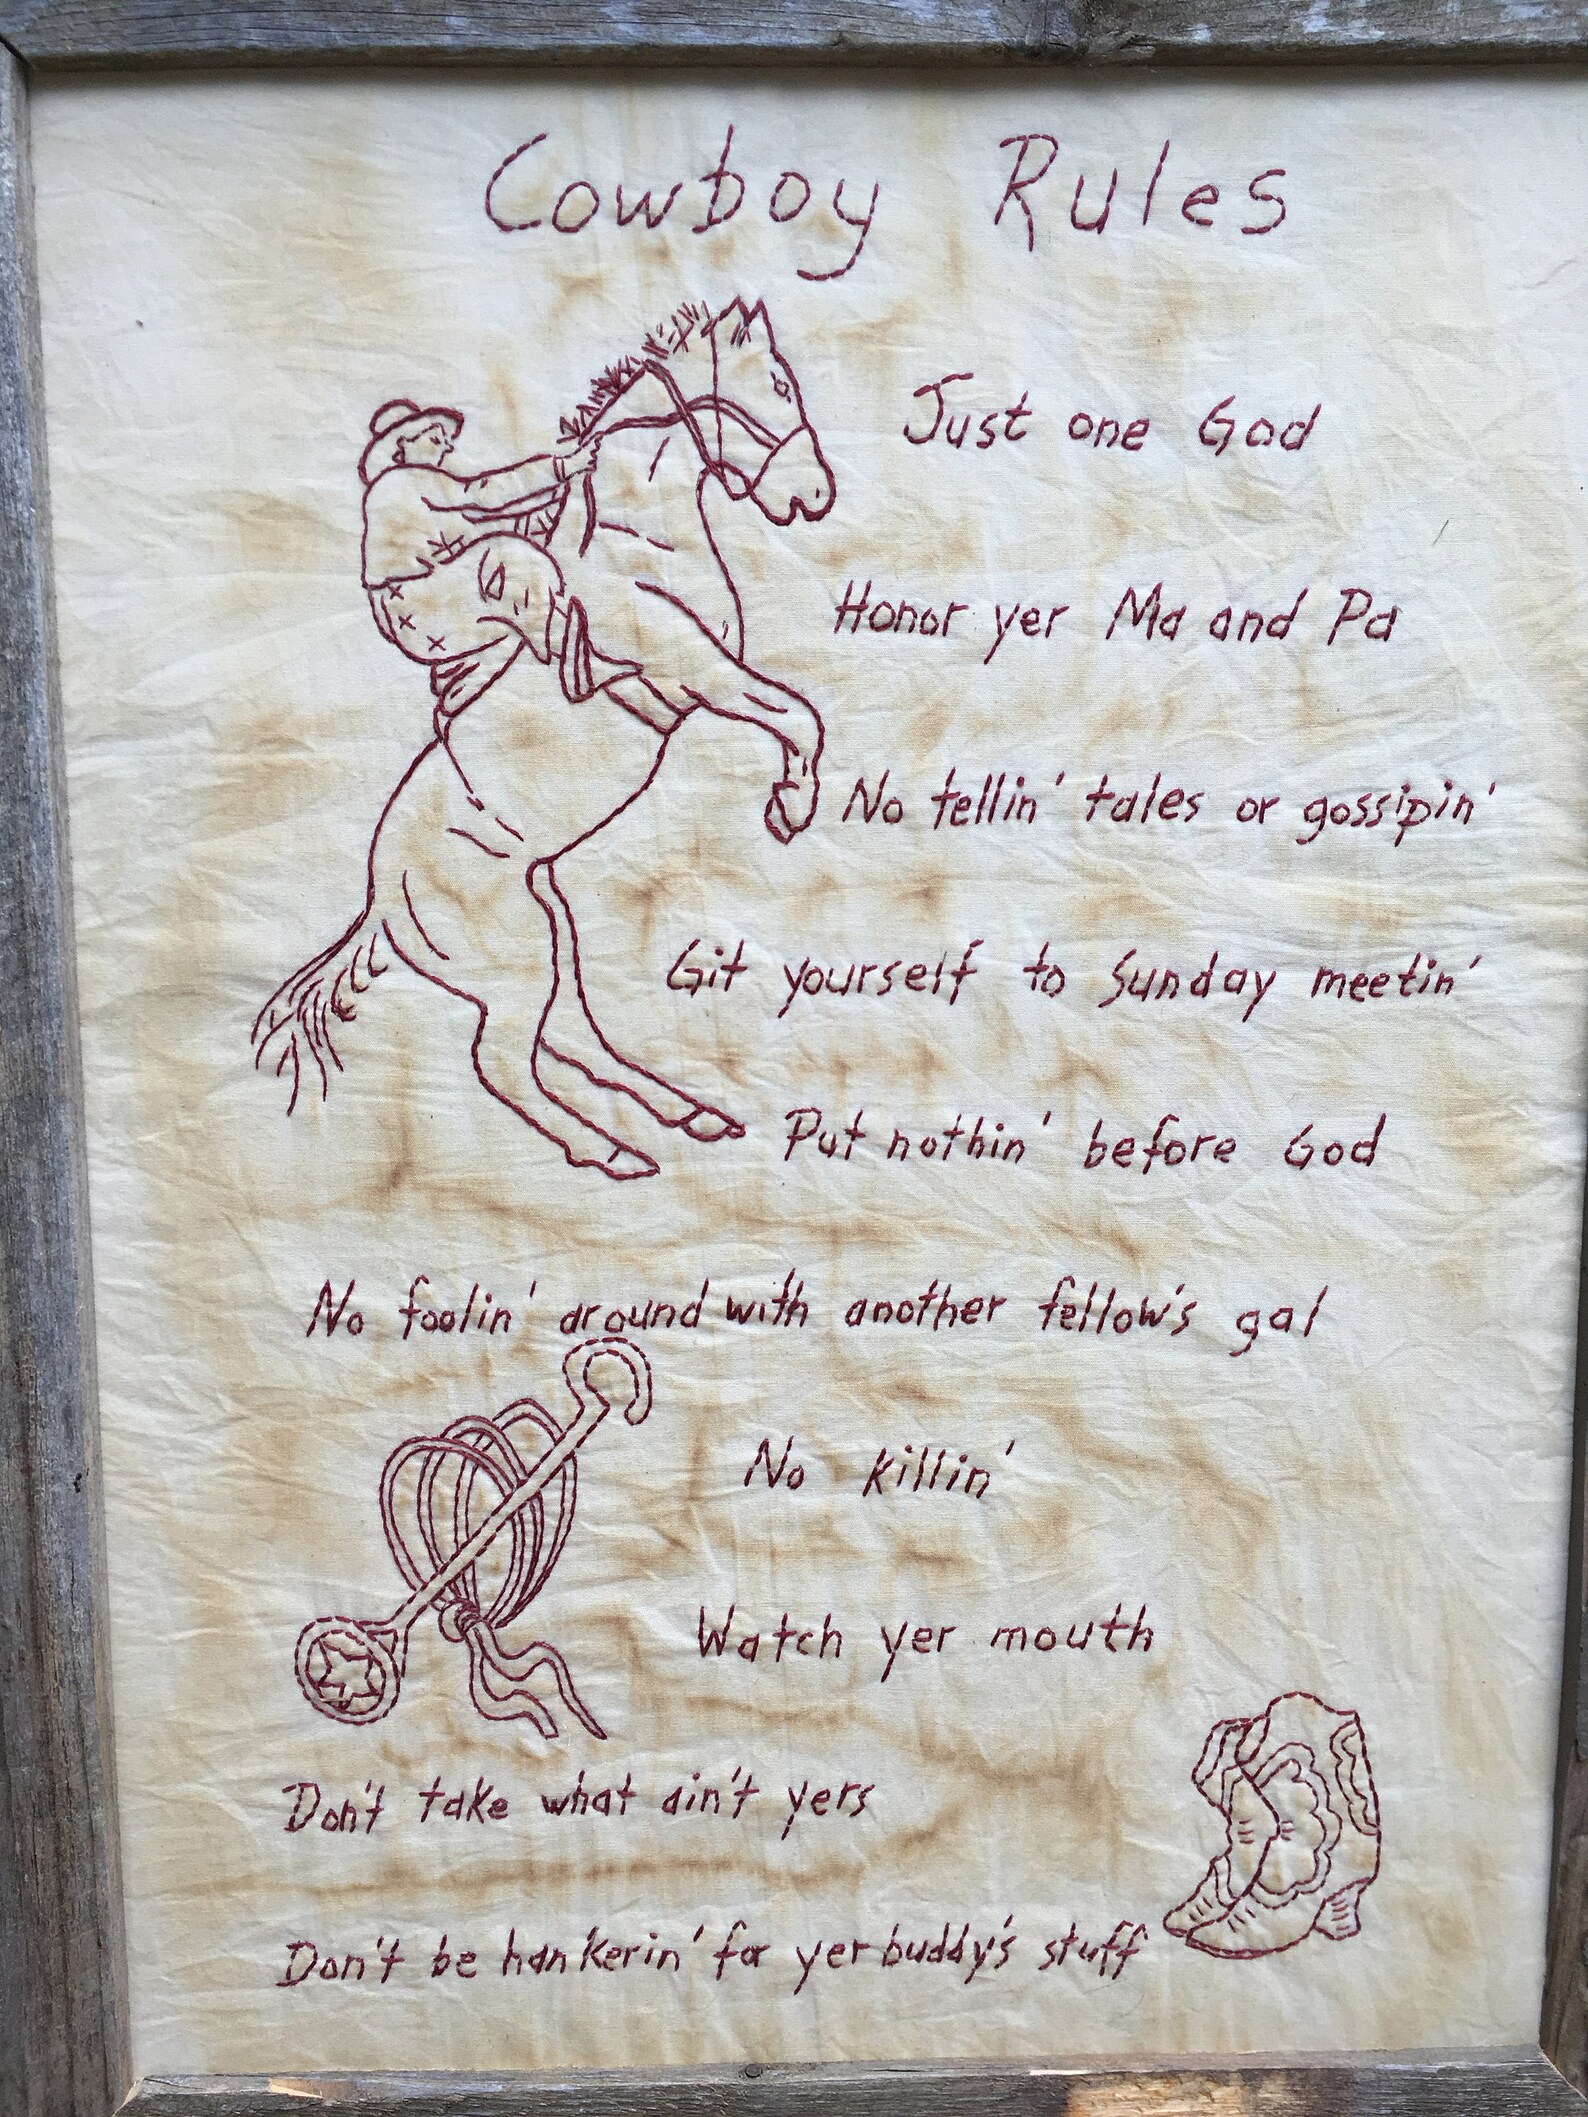 Cowboy Rules
Just one God
Honor yer Ma and Pa
No tellin' tales or gossipin'
Git yourself to Sunday meetin'
Put nothin' before God
No foolin' around with another fellow's gal
No killin'
Watch yer mouth
Don't take what ain't yers
Don't be hankerin' for yer buddy's stuff